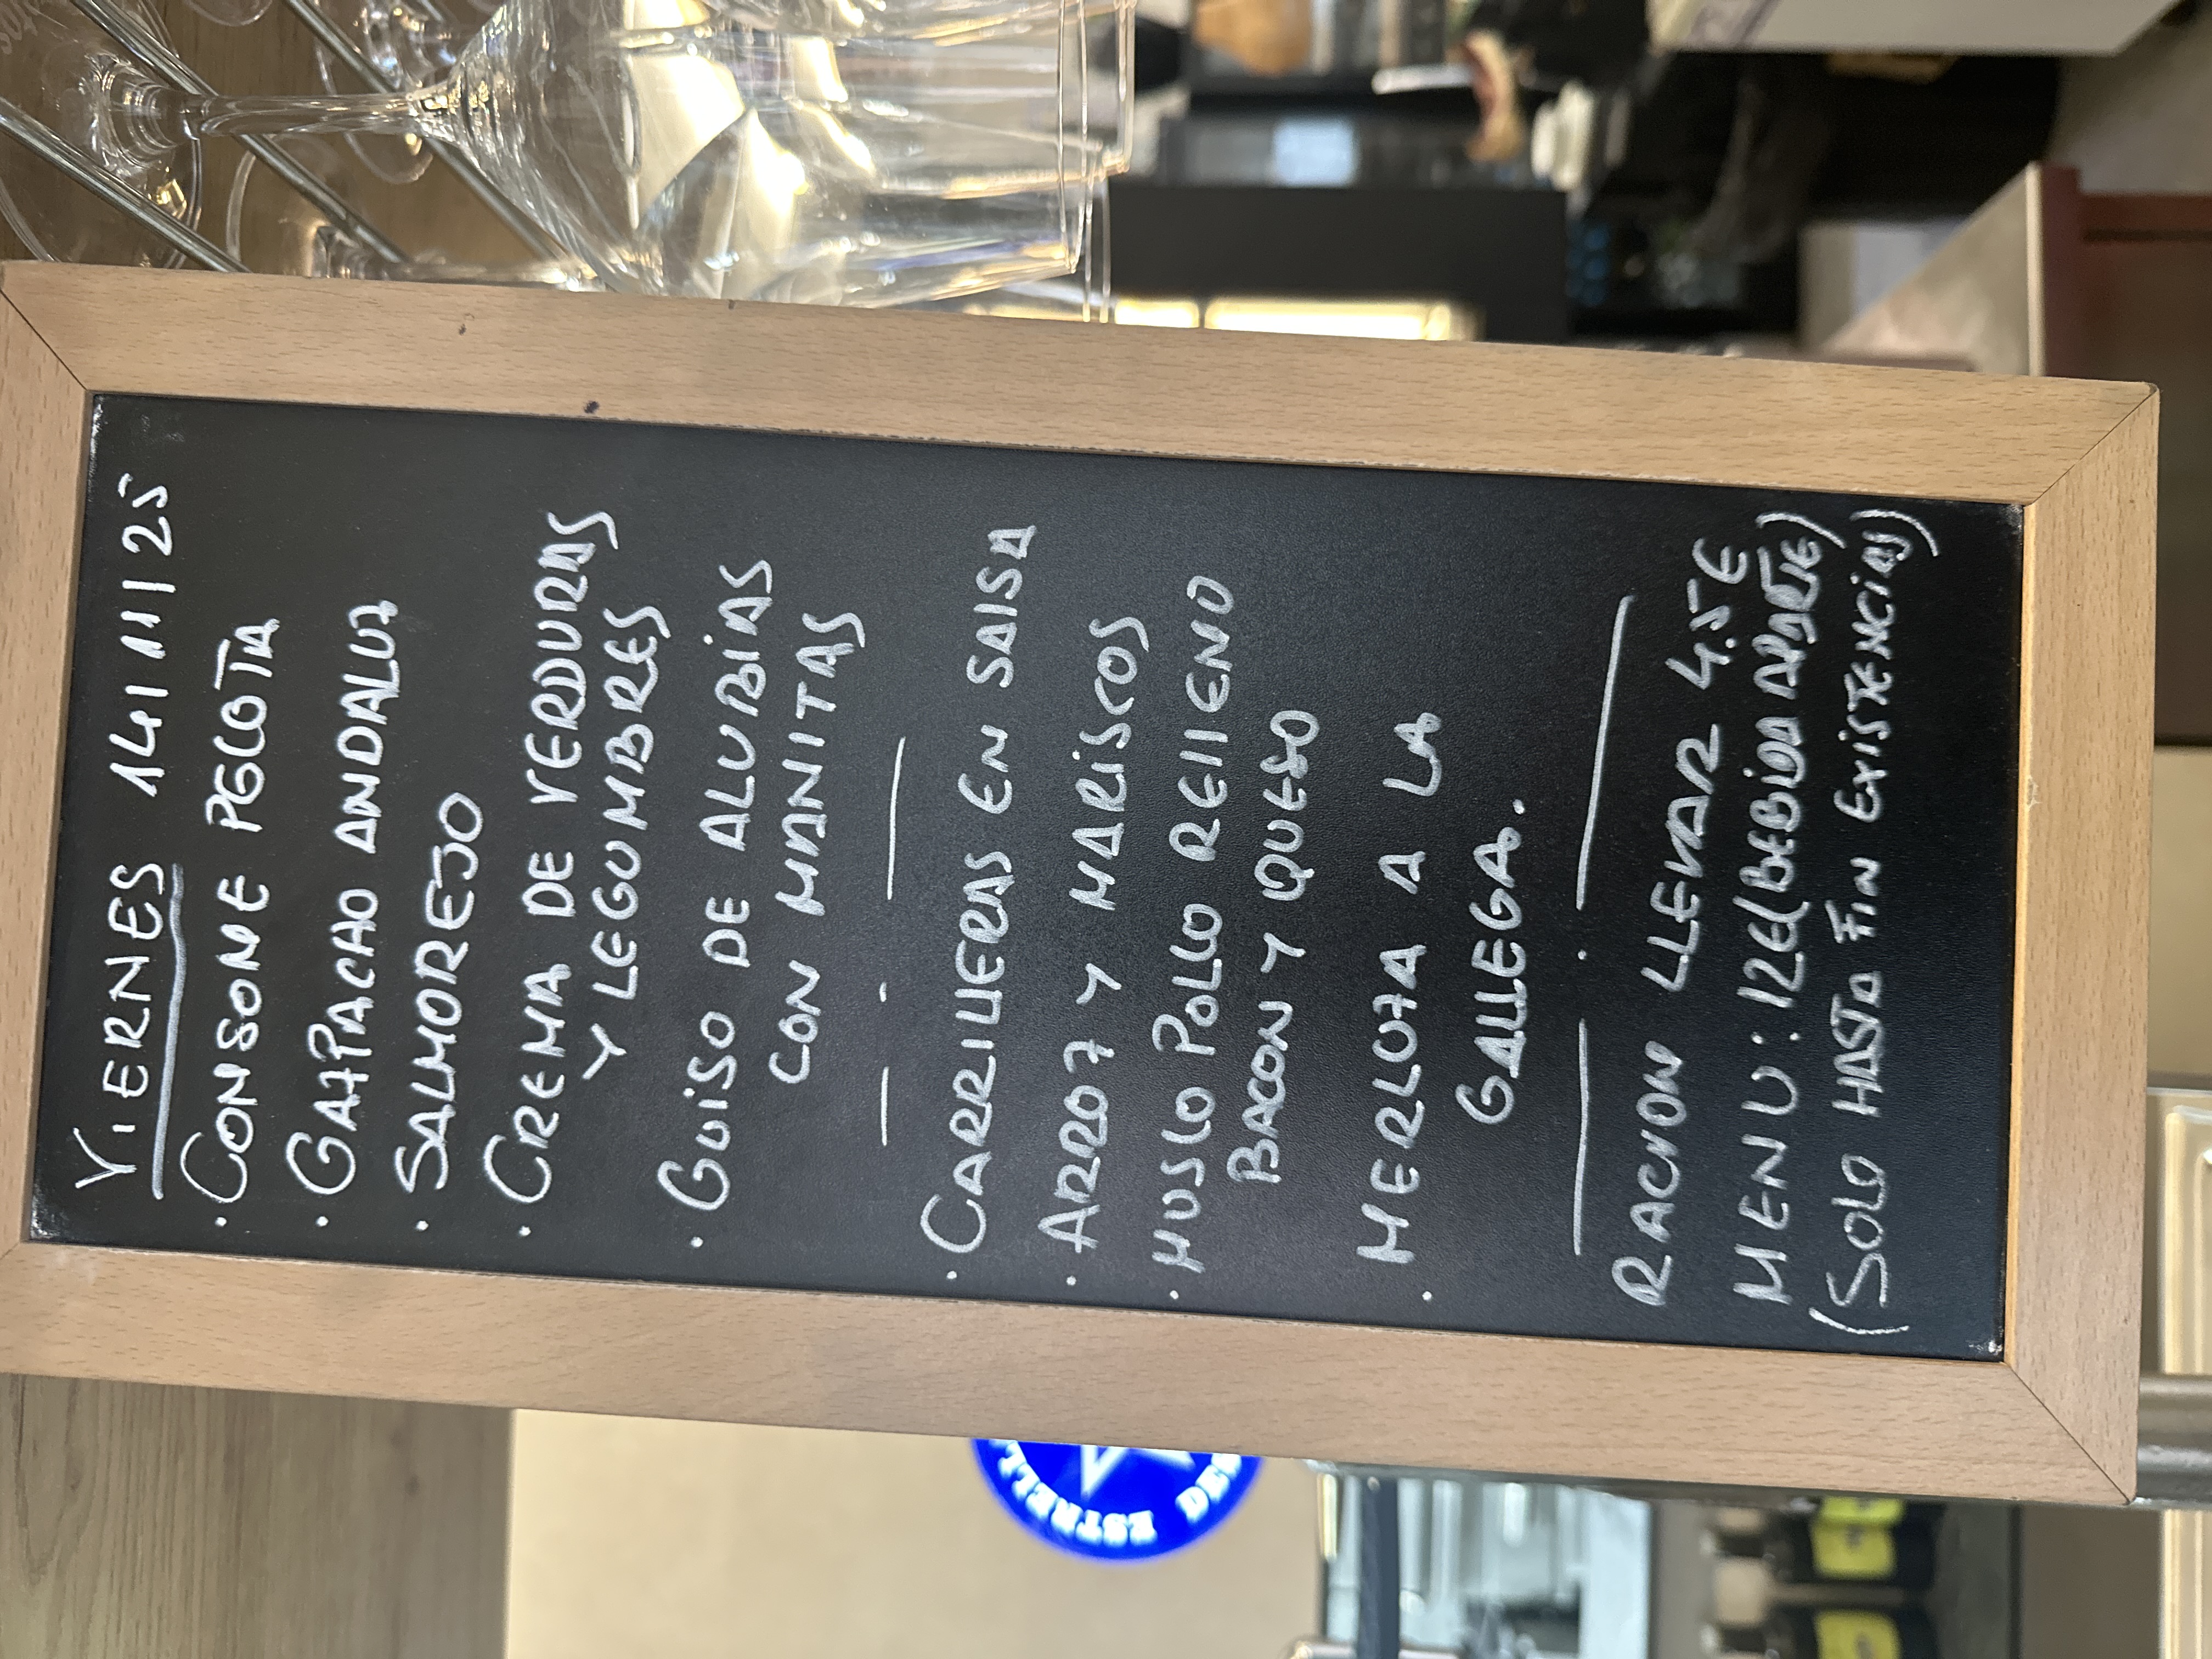 VIERNES 14/11/25
· CONSOME PELOTA
· GAZPACHO ANDALUZ
· SALMOREJO
· CREMA DE VERDURAS
Y LEGUMBRES
· GUISO DE ALUBIAS
CON MANITAS
· CARRILLERAS EN SALSA
· ARROZ Y MARISCOS
· MUSLO POLLO RELLENO
BACON Y QUESO
· MERLUZA A LA
GALLEGA.
RACION LLEVAR 4.5€
MENU: 12€ (BEBIDA APARTE)
(SOLO HASTA FIN EXISTENCIAS)